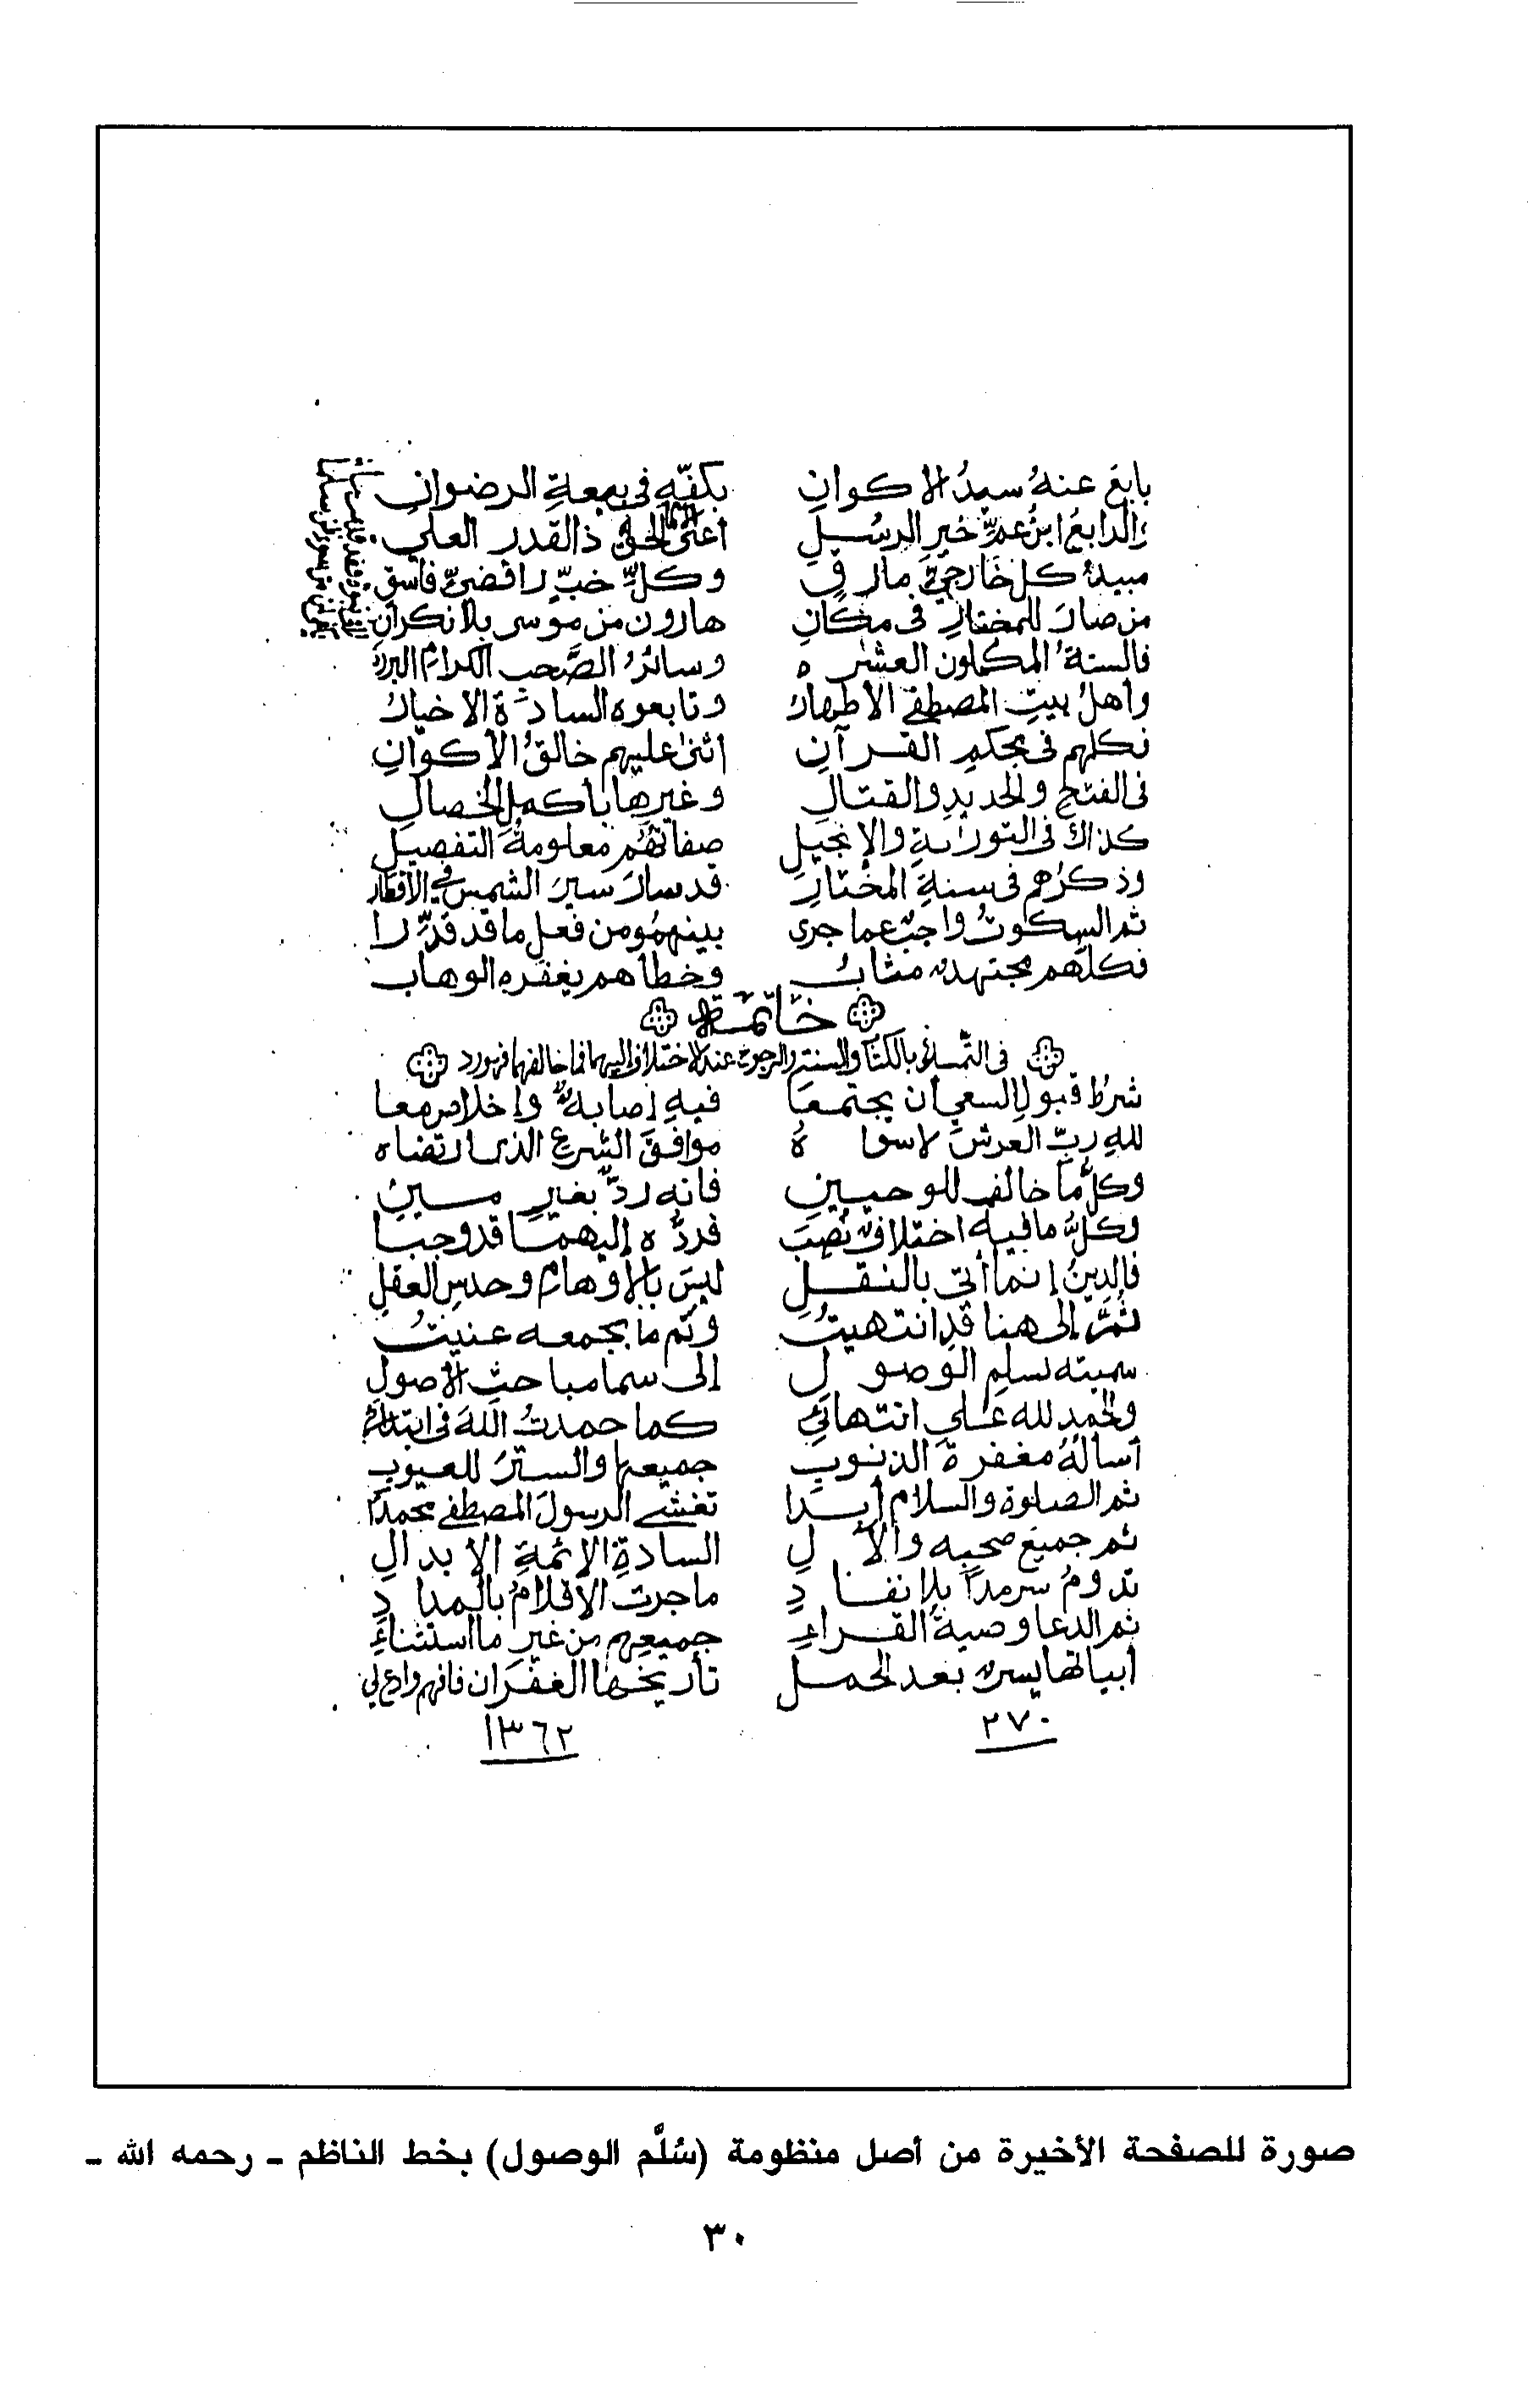 بايعَ عنهُ سيدُ الاكوانِ بكفّهِ فى بيعةِ الرضوانِ
والرابعُ ابنُ عمِّ خيرِ الرسُلِ أعنى الامام الحقَّ ذا القدرِ العلى
مبيدُ كلِ خارجيٍّ مارقِ وكلِّ خبٍّ رافضىٍّ فاسقِ
من صارَ للمختارِ فى مكانِ هارون من موسى بلا نكرانِ
فالستةُ المكملون العشره وسائرُ الصَّحب الكرامِ البرره
وأهلُ بيتِ المصطفى الأطهارُ وتابعوه السادةُ الاخيارُ
فكلهم فى محكمِ القرآنِ اثنى عليهم خالقُ الأكوانِ
فى الفتحِ والحديدِ والقتالِ وغيرِها بأكملِ الخصالِ
كذاك فى التوراةِ والإنجيلِ صفاتهُم معلومةُ التفصيلِ
وذكرُهم فى سنةِ المختارِ قد سارَ سيرَ الشمسِ في الأقطارِ
ثم السكوتُ واجبٌ عما جرى بينهمُو من فعلِ ما قد قدِّرا
فكلهم مجتهدٌ مثابُ وخطأهم يغفره الوهاب
خاتمة
فى التمسك بالكتاب والسنة والرجوع عند الاختلاف اليهما فما خالفهما فهو رد
شرطُ قبولِ السعي أن يجتمعَا فيهِ إصابةٌ وإخلاص معا
للهِ ربِّ العرشِ لا سواهُ موافقَ الشرعِ الذى ارتضاه
وكلُّ ما خالف للوحيينِ فانه ردٌّ بغيرِ مينِ
وكلُّ ما فيه اختلافٌ نُصِبَا فردُّه إليهما قد وجبا
فالدينُ إنما أتى بالنقلِ ليسَ بالأوهام وحدسِ العقلِ
ثمَّ إلى هنا قدِ انتهيتُ وتم ما بجمعه عنيتُ
سميته بسلم الوصولِ إلى سما مباحثِ الأصولِ
والحمد لله على انتهائي كما حمدتُ اللهَ فى ابتدائي
أسأله مغفرةَ الذنوبِ جميعها والسترَ للعيوبِ
ثم الصلوة والسلام أبدا تغشى الرسولَ المصطفى محمدًا
ثم جميع صحبه والآلِ السادةِ الائمةِ الابدالِ
تدومُ سرمداً بلا نفادِ ما جرت الأقلامُ بالمدادِ
ثم الدعا وصيةُ القراءِ جميعِهم من غيرِ ما استثناءِ
أبياتها يسرٌ بعد الجمل تأريخها الغفران فافهم وادع لي
٢٧٠ ١٣٦٢
صورة للصفحة الأخيرة من أصل منظومة (سُلَّم الوصول) بخط الناظم - رحمه الله -
٣٠